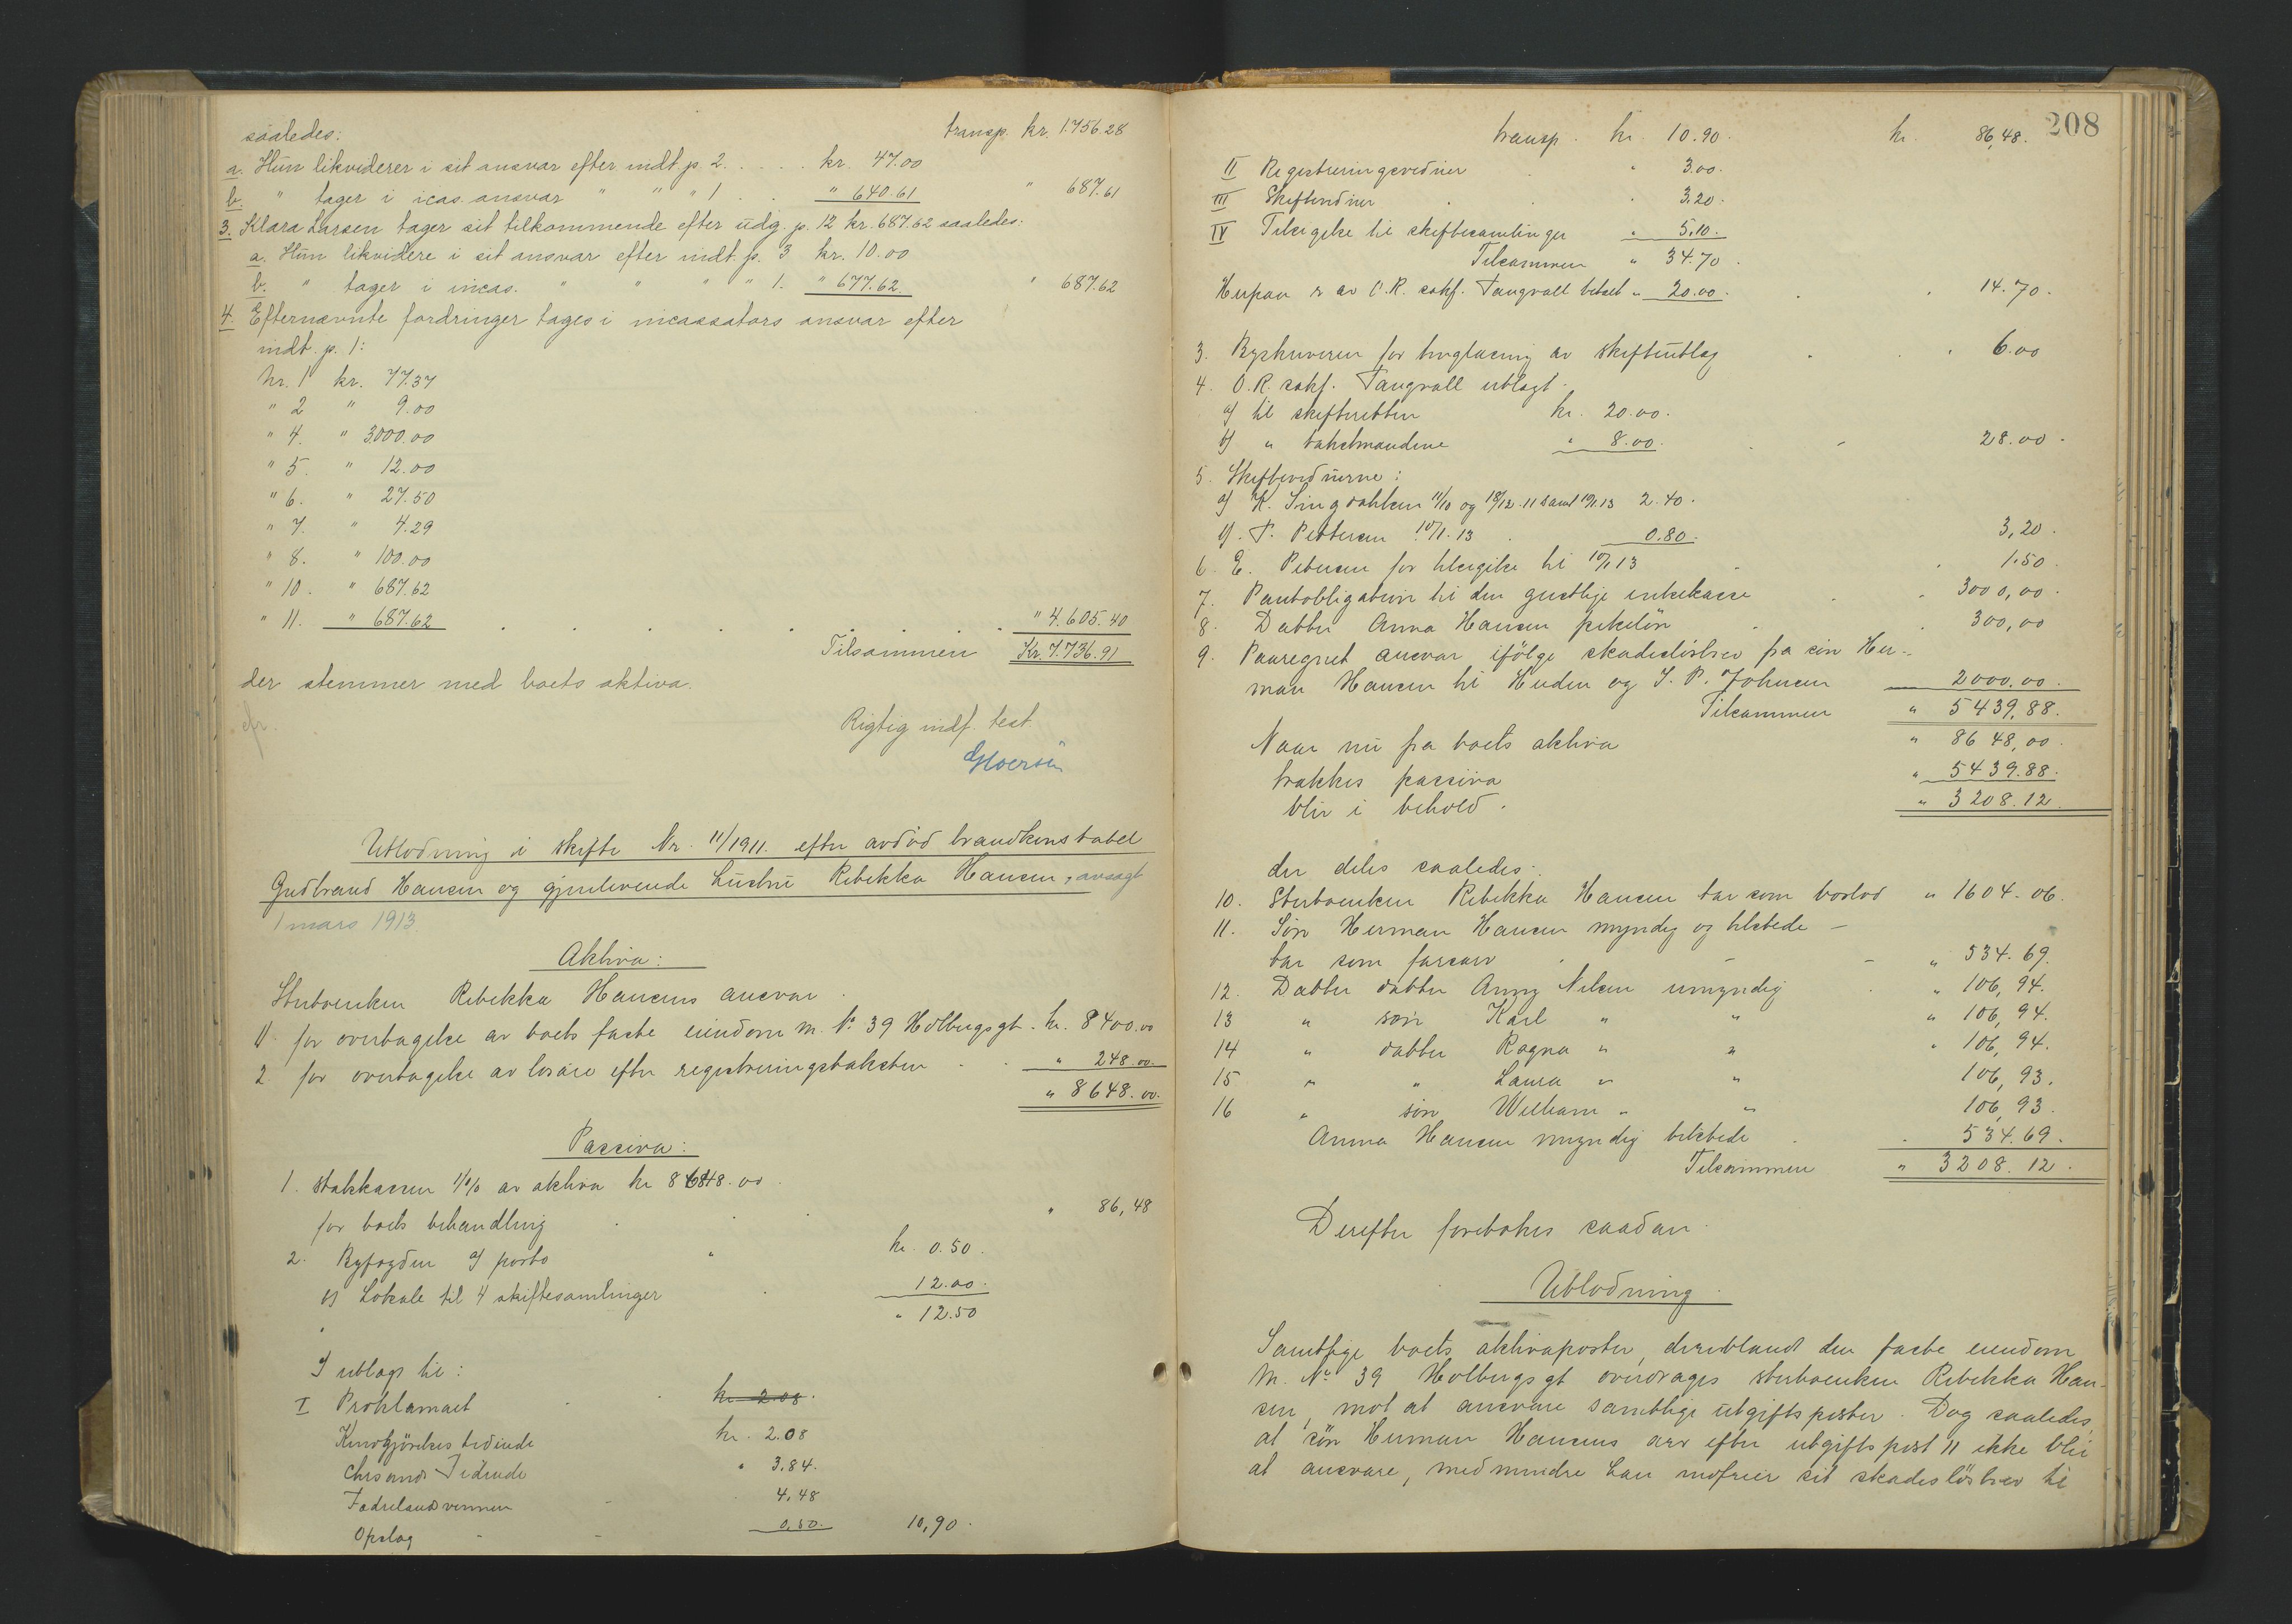 saaledes: transp. kr. 1.756.28
a. Hun likviderer i sit ansvar efter indt. p. 2. . . . kr. 47.00
b. " tager i icas. ansvar " " " 1 . . " 640.61 " 687.61
3. Klara Larsen tager sit tilkommende efter udg. p. 12 kr. 687.62 saaledes:
a. Hun likvidere i sit ansvar efter indt. p. 3 kr. 10.00
b. " tager i incas. " " " " 1. " 677.62 " 687.62
4. Efternævnte fordringer tages i incassators ansvar efter
indt. p. 1:
nr. 1 kr. 77.37
" 2 " 9.00
" 4. " 3000.00
" 5. " 12.00
" 6. " 27.50
" 7. " 4.29
" 8. " 100.00
" 10. " 687.62
" 11. " 687.62 . . . . . . . . " 4.605.40
Tilsammen Kr. 7.736.91
der stemmer med boets aktiva.
Rigtig indf. test.
Utlodning i skifte Nr. 11/1911. efter avdöd brandkonstabel
Gudbrand Hansen og gjenlevende hustru Rebekka Hansen, avsagt
1 mars 1913.
Aktiva:
Sterboenken Rebekka Hansens ansvar.
1. for overtagelse av boets faste eiendom M. No 39 Holbergsgt. kr. 8400.00
2. for overtagelse av lösöre efter registreringstaksten . . " 248.00.
" 8648.00.
Passiva:
1. Statkassen 1% av aktiva kr 8648.00
for boets behandling . . . " 86,48
2. Byfogden a) porto " kr. 0.50.
b) Lokale til 4 skiftesamlinger . 12.00.
" 12.50
I utlagt til:
I Proklamaet . kr 2.08.
Kundgjörelses tidende kr. 2.08
Chrsands Tidende " 3.84.
Fædrelandsvennen 4,48
Opslag - - 0,50. 10,90.
208
transp. kr. 10.90. kr. 86,48.
II Registreringsvidner . " 3.00.
III Skiftevidner . . " 3.20.
IV Tilsigelse til skiftesamlinger " 5.10.
Tilsammen " 34.70.
Herpaa er av O.R. sakf. Tangvall betalt " 20.00. . " 14.70.
3. Byskriveren for tinglæsning av skifteutlæg . . 6.00
4. O.R. sakf. Tangvall utlagt.
a) til skifteretten kr. 20.00.
b) " takstmændene " 8.00. . - 28.00.
5. Skiftevidnerne:
a) K. Singdahlsen 11/10 og 18/12.11 samt 10/1.13 2.40.
b). T. Pettersen 10/1.13 . 0.80. 3,20.
6. E. Petersen for tilsigelse til 10/1 13 - . 1.50.
7. Pantobligation til den geistlige enkekasse . " 3000,00.
8. Datter Anna Hansen pikelön . . 300,00
9. Paaregnet ansvar ifölge skadeslösbrev fra sön Her-
man Hansen til Heuden og J. P. Johnsen 2000.00.
Tilsammen " 5439,88.
Naar nu fra boets aktiva " 8648,00.
trækkes passiva " 5439.88.
blir i behold. " 3208.12.
der deles saaledes:
10. Sterboenken Rebekka Hansen tar som boslod " 1604.06.
11. Sön Herman Hansen myndig og tilstede -
tar som farsarv . - - " 534.69.
12. Datter datter Anny Nilsen umyndig . " 106,94.
13 " sön Karl " " " 106,94.
14 " datter Ragna " " " 106,94.
15 " " Laura " " 106,93.
16 " sön William " " 106,93.
Anna Hansen myndig tilstede . . 534.69.
Tilsammen " 3208.12.
Derefter foretokes saadan.
Utlodning.
Samtlige boets aktivaposter, deriblandt den faste eiendom
M. No 39 Holbergsgt overdrages sterboenken Rebekka Han-
sen, mot at ansvare samtlige utgiftsposter. Dog saaledes,
at sön Herman Hansens arv efter utgiftspost 11 ikke blir
at ansvare, medmindre han indfrier sit skadeslösbrev til